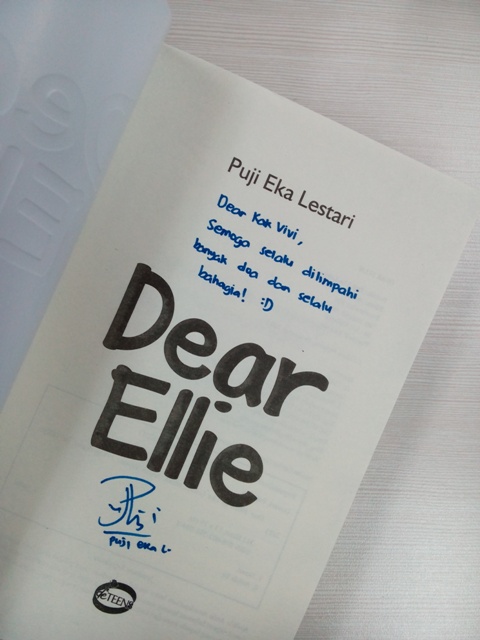 Puji Eka Lestari
Dear Kak Vivi,
Semoga selalu dilimpahi
banyak doa dan selalu
bahagia! :D
Dear
Ellie
Puji
Puji Eka L.
de TEENS